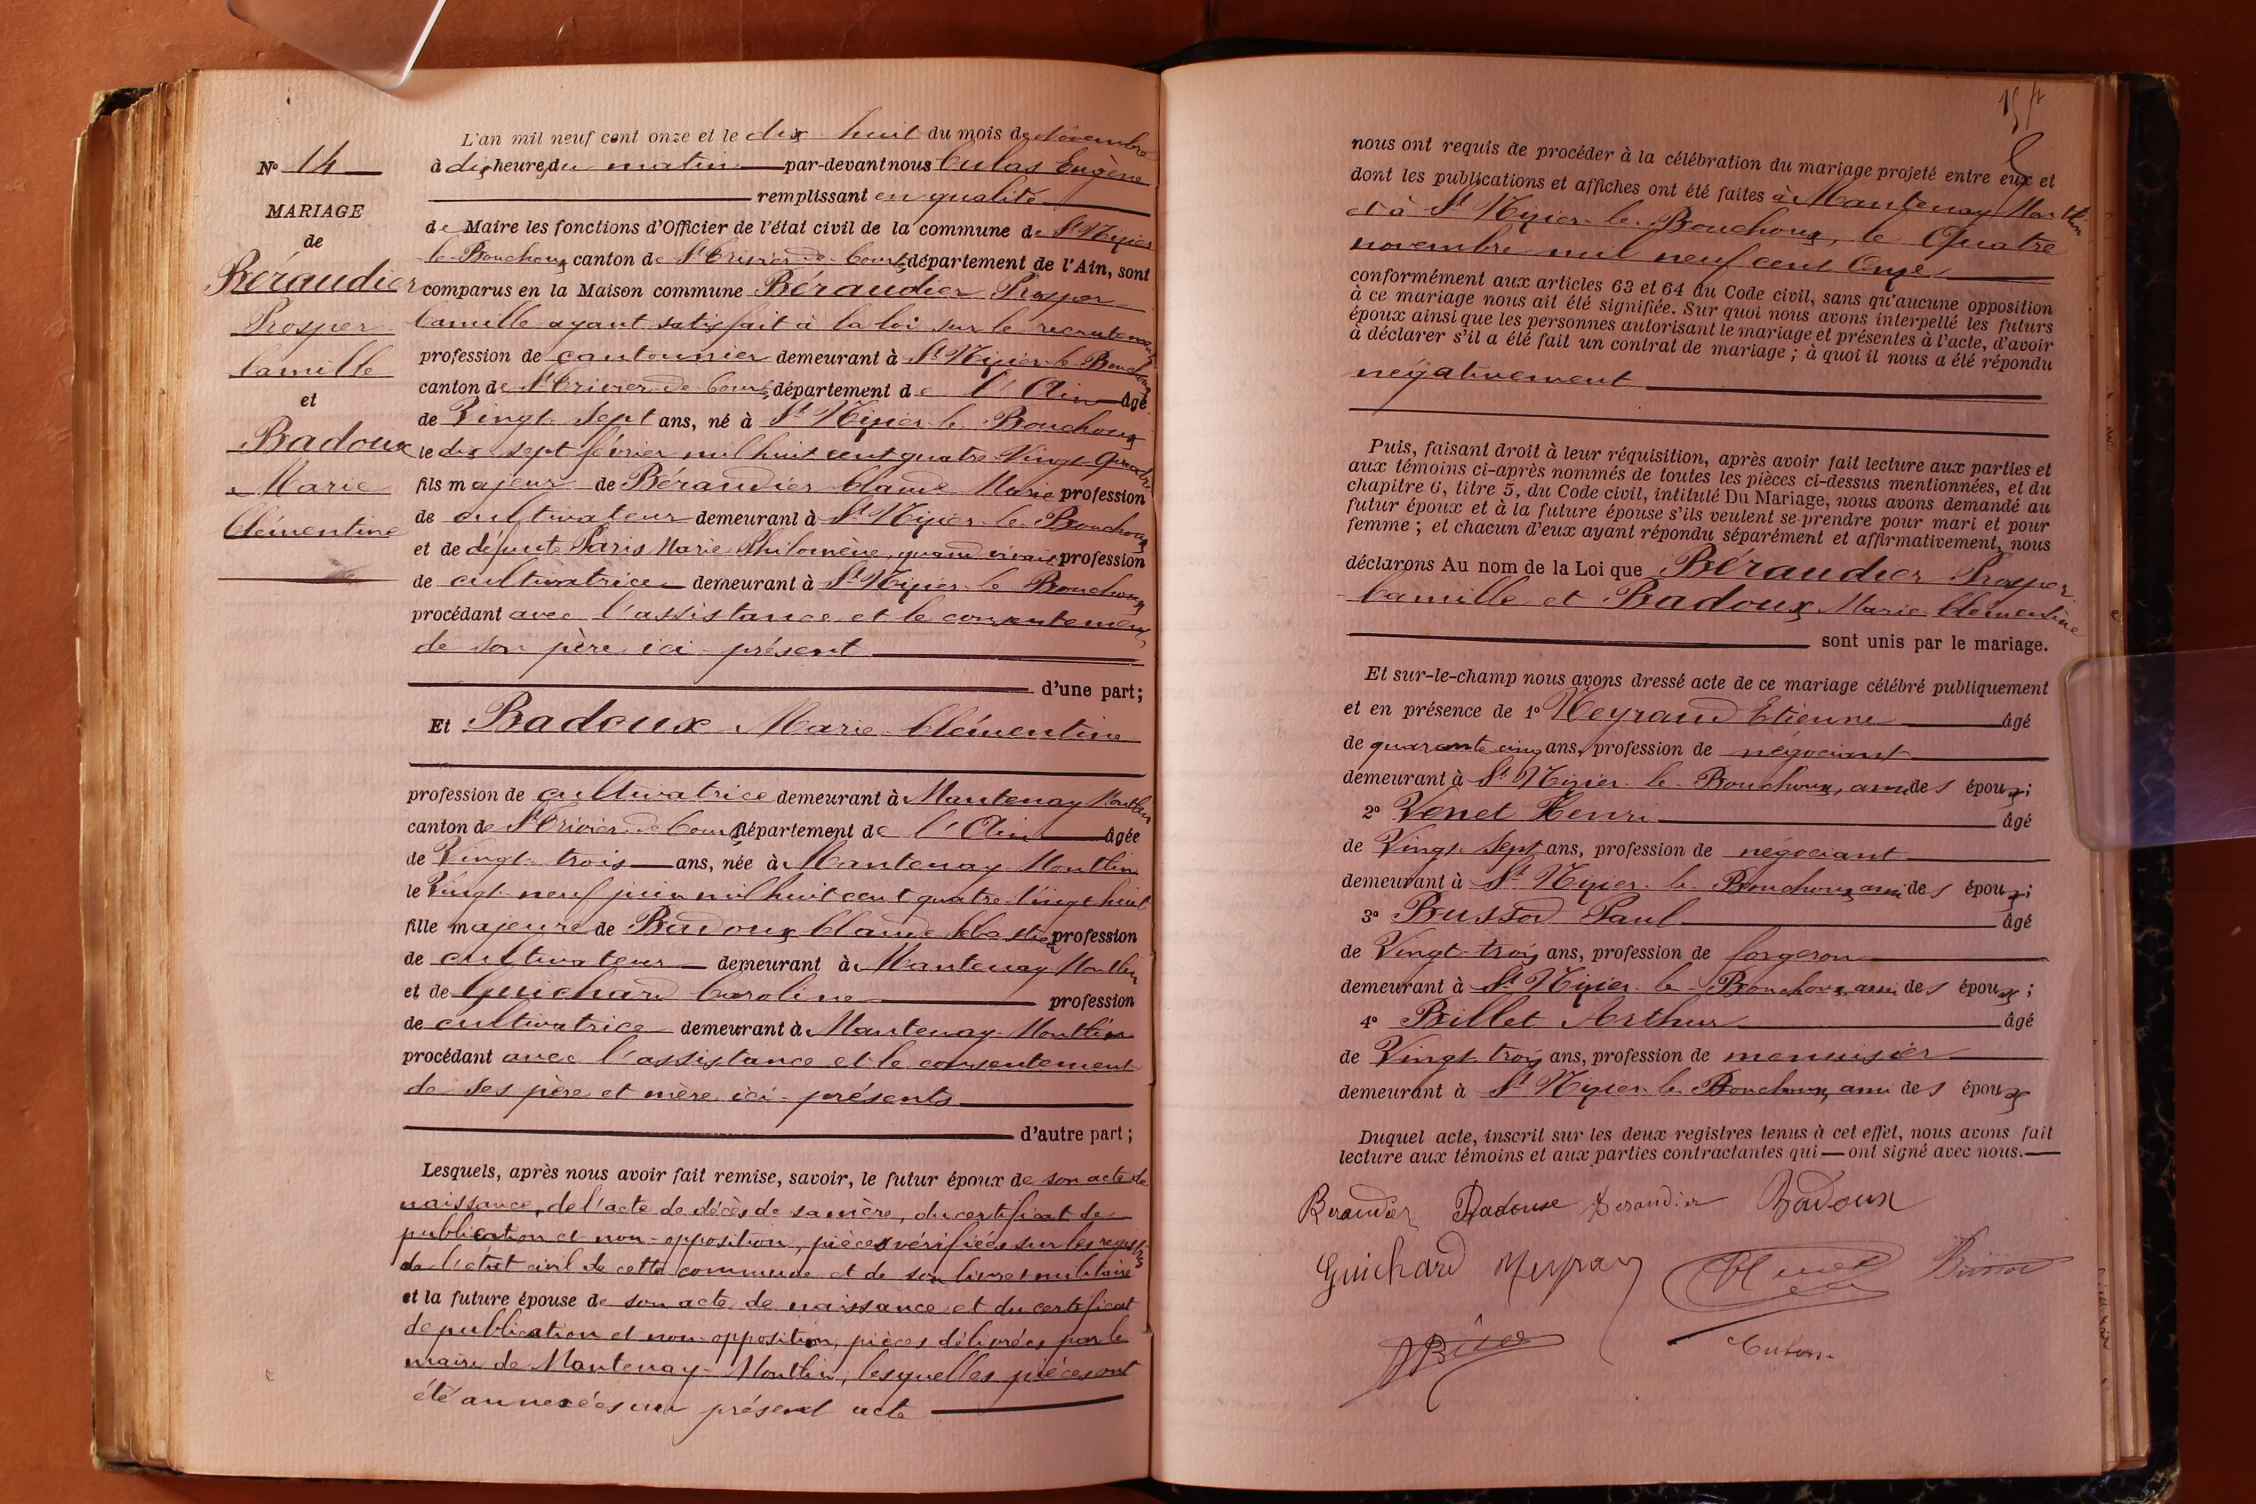 N° 14
MARIAGE
de
Béraudier
Prosper
Camille
et
Badoux
Marie
Clémentine
L'an mil neuf cent onze et le dix huit du mois de Novembre
à dix heures du matin par-devant nous Culas Eugène
remplissant en qualité
de Maire les fonctions d'Officier de l'état civil de la commune de St Nizier
le Bouchoux canton de St Trivier de Courtes département de l'Ain, sont
comparus en la Maison commune Béraudier Prosper
Camille ayant satisfait à la loi sur le recrutement
profession de cantonnier demeurant à St Nizier le Bouchoux
canton de St Trivier de Courtes département de l'Ain âgé
de Vingt Sept ans, né à St Nizier le Bouchoux
le dix sept février mil huit cent quatre Vingt Quatre
fils majeur de Béraudier Claude Marie profession
de cultivateur demeurant à St Nizier le Bouchoux
et de défunte Paris Marie Philomène, quand vivait profession
de cultivatrice demeurant à St Nizier le Bouchoux
procédant avec l'assistance et le consentement
de son père ici présent
d'une part;
Et Badoux Marie Clémentine
profession de cultivatrice demeurant à Mantenay Montlin
canton de St Trivier de Courtes département de l'Ain âgée
de Vingt trois ans, née à Mantenay Montlin
le Vingt neuf juin mil huit cent quatre Vingt huit
fille majeure de Badoux Claude Sébastien profession
de cultivateur demeurant à Mantenay Montlin
et de Guichard Caroline profession
de cultivatrice demeurant à Mantenay Montlin
procédant avec l'assistance et le consentement
de ses père et mère ici présents
d'autre part;
Lesquels, après nous avoir fait remise, savoir, le futur époux de son acte de
naissance, de l'acte de décès de sa mère, du certificat de
publication et non-opposition, pièces vérifiées sur les registres
de l'état civil de cette commune et de son livret militaire
et la future épouse de son acte de naissance et du certificat
de publication et non opposition, pièces délivrées par le
maire de Mantenay-Montlin, lesquelles pièces ont
été annexées au présent acte
nous ont requis de procéder à la célébration du mariage projeté entre eux et
dont les publications et affiches ont été faites à Mantenay Montlin
et à St Nizier le Bouchoux, le Quatre
novembre mil neuf cent Onze
conformément aux articles 63 et 64 du Code civil, sans qu'aucune opposition
à ce mariage nous ait été signifiée. Sur quoi nous avons interpellé les futurs
époux ainsi que les personnes autorisant le mariage et présentes à l'acte, d'avoir
à déclarer s'il a été fait un contrat de mariage; à quoi il nous a été répondu
négativement
Puis, faisant droit à leur réquisition, après avoir fait lecture aux parties et
aux témoins ci-après nommés de toutes les pièces ci-dessus mentionnées, et du
chapitre 6, titre 5, du Code civil, intitulé Du Mariage, nous avons demandé au
futur époux et à la future épouse s'ils veulent se prendre pour mari et pour
femme; et chacun d'eux ayant répondu séparément et affirmativement, nous
déclarons Au nom de la Loi que Béraudier Prosper
Camille et Badoux Marie Clémentine
sont unis par le mariage.
Et sur-le-champ nous avons dressé acte de ce mariage célébré publiquement
et en présence de 1° Neyraud Etienne âgé
de quarante cinq ans, profession de négociant
demeurant à St Nizier le Bouchoux, ami des époux;
2° Venet Henri âgé
de Vingt Sept ans, profession de négociant
demeurant à St Nizier le Bouchoux ami des époux;
3° Bussod Paul âgé
de Vingt trois ans, profession de forgeron
demeurant à St Nizier le Bouchoux, ami des époux;
4° Billet Arthur âgé
de Vingt trois ans, profession de menuisier
demeurant à St Nizier le Bouchoux, ami des époux
Duquel acte, inscrit sur les deux registres tenus à cet effet, nous avons fait
lecture aux témoins et aux parties contractantes qui ont signé avec nous.
Beraudier Badoux Beraudier Badoux
Guichard